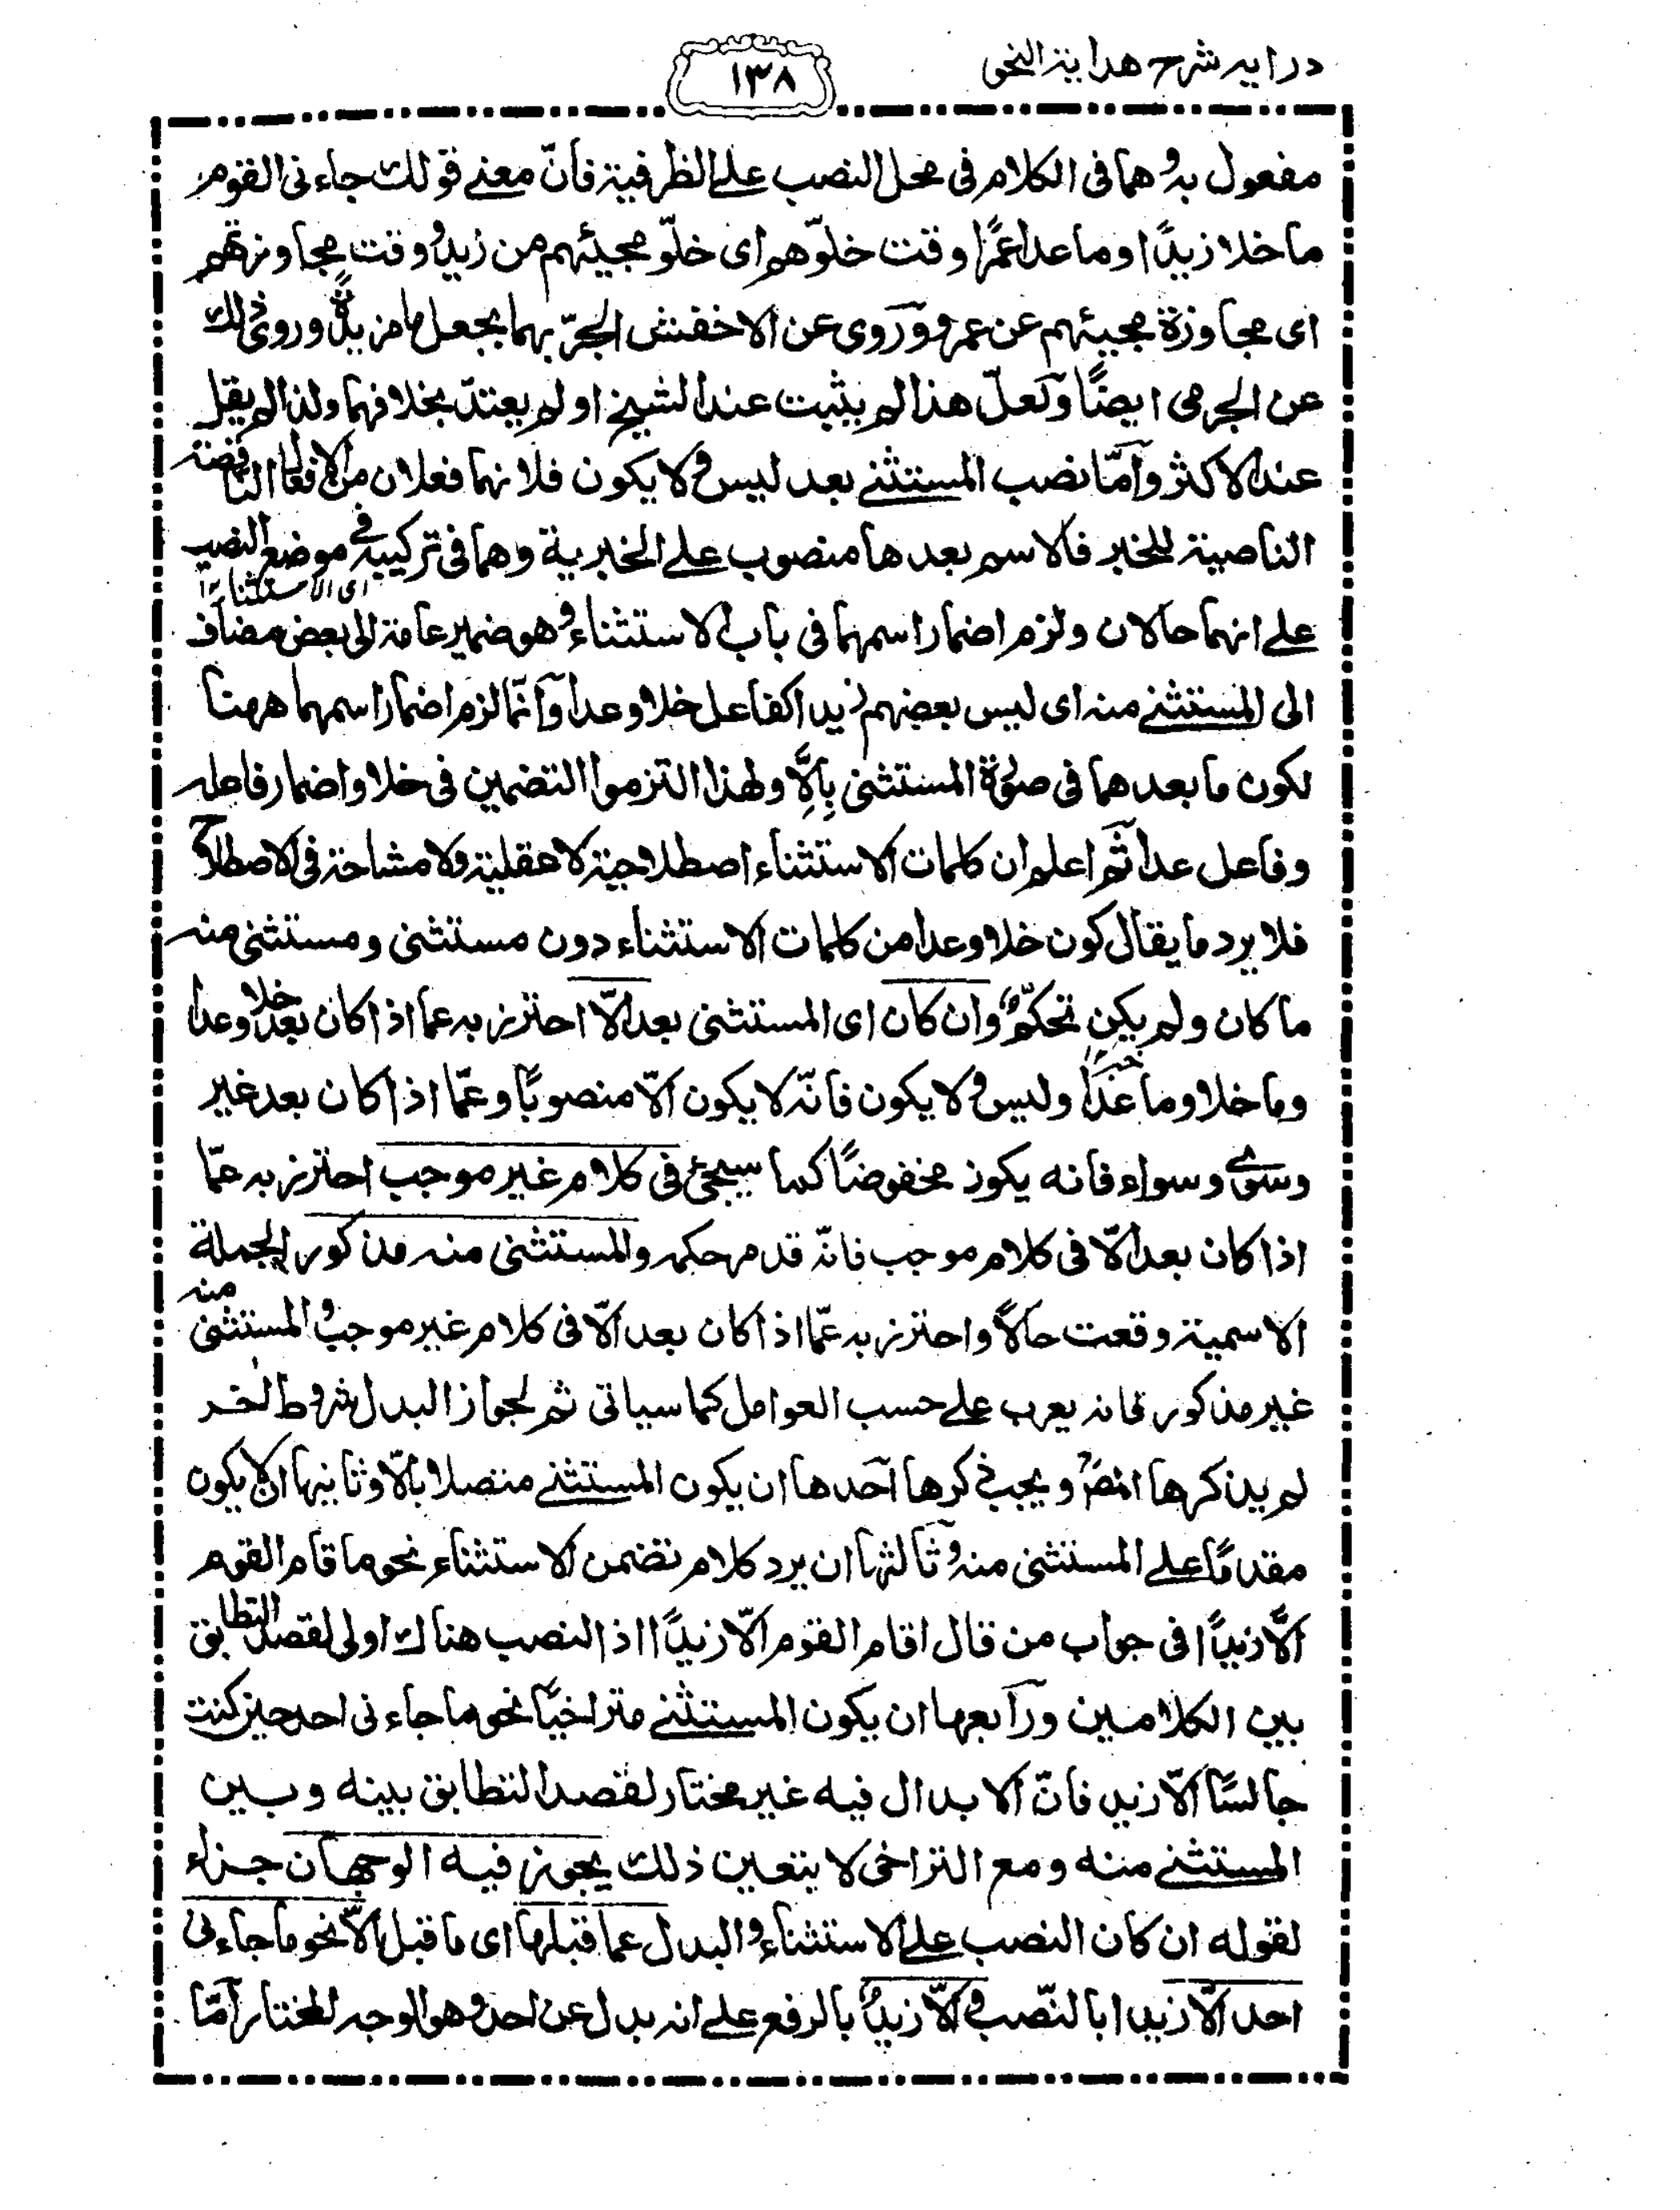 درايه شرح هداية النحو
١٣٨
مفعول به وهما فى الكلام فى محل النصب على الظرفية فانّ معنى قولك جاءنى القوم
ما خلا زيدًا وما عدا عمرًا وقت خلوّهم اى خلوّ مجيئهم من زيد ووقت مجاوزتهم
اى مجاوزة مجيئهم عن عمرو وروى عن الاخفش الجرّ بهما بجعل ما مزيدة وروى ذلك
عن الجرمى ايضًا ولعلّ هذا لم يثبت عند الشيخ او لم يعتدّ بخلافهما ولذا لم يقل
عند الاكثر وامّا نصب المستثنى بعد ليس ولا يكون فلانهما فعلان من الافعال الناقصة
الناصبة للخبر فالاسم بعدها منصوب على الخبرية وهما فى تركيبه فى موضع النصب
اى الاستثناء
على انهما حالان ولزم اضمار اسمهما فى باب الاستثناء وهو ضمير عائد الى بعض مضاف
الى المستثنى منه اى ليس بعضهم زيدا كفاعل خلا وعدا وانّما لزم اضمار اسمهما ههنا
لكون ما بعدهما فى صورة المستثنى بالّا ولهذا التزموا التضمين فى خلا واضمار فاعله
وفاعل عدا ثم اعلم ان كلمات الاستثناء اصطلاحية لا عقلية ولا مشاحة فى الاصطلاح
فلا يرد ما يقال كون خلا وعدا من كلمات الاستثناء دون مستثنى ومستثنى منه
ما كان ولم يكن تحكّم وان كان اى المستثنى بعد الّا احترز به عما اذا كان بعد خلا وعدا
وما خلا وما عدا وليس ولا يكون فانّه لا يكون الّا منصوبًا وعمّا اذا كان بعد غير
وسوى وسواء فانه يكون مخفوضًا كما سيجئ فى كلام غير موجب احترز به عمّا
اذا كان بعد الّا فى كلام موجب فانّه قد مر حكمه والمستثنى منه مذكور الجملة
الاسمية وقعت حالًا واحترز به عمّا اذا كان بعد الّا فى كلام غير موجب والمستثنى منه
غير مذكور فانه يعرب على حسب العوامل كما سياتى ثم لجواز البدل شروط اخر
لم يذكرها المص ويجب ذكرها احدها ان يكون المستثنى متصلا بالّا وثانيها ان لا يكون
مقدمًا على المستثنى منه وثالثها ان يرد كلام تضمن الاستثناء نحو ما قام القوم
الّا زيدًا فى جواب من قال اقام القوم الّا زيدًا اذ النصب هناك اولى لقصد التطابق
بين الكلامين ورابعها ان يكون المستثنى متراخيًا نحو ما جاءنى احد حين كنت
جالسًا الّا زيد فانّ الابدال فيه غير مختار لقصد التطابق بينه وبين
المستثنى منه ومع التراخى لا يتعين ذلك يجوز فيه الوجهان جزاء
لقوله ان كان النصب على الاستثناء والبدل عما قبلها اى ما قبل الّا نحو ما جاءنى
احد الّا زيدا بالنّصب والّا زيدٌ بالرفع على انه بدل عن احد وهو الوجه المختار امّا